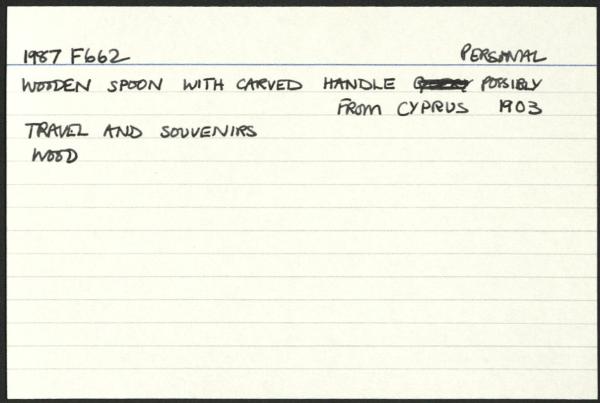 1987 F662 PERSONAL
WOODEN SPOON WITH CARVED HANDLE POSSIBLY
FROM CYPRUS 1903
TRAVEL AND SOUVENIRS
WOOD